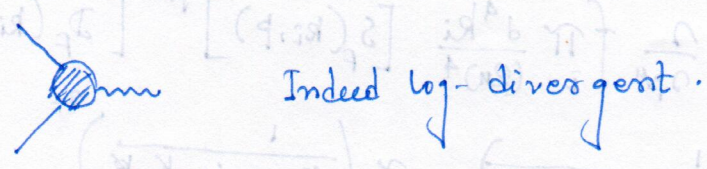 Indeed log-divergent.